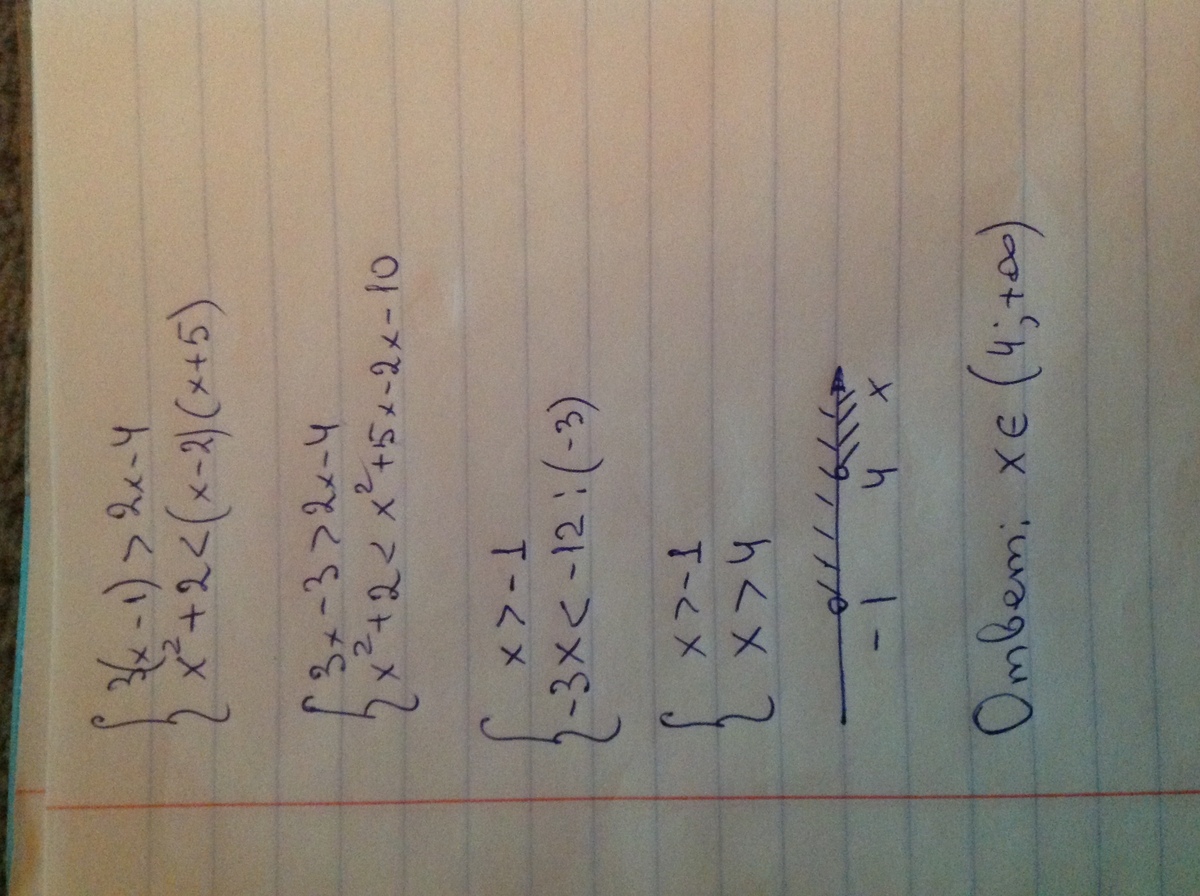 3(x-1)>2x-4
x²+2<(x-2)(x+5)
3x-3>2x-4
x²+2<x²+5x-2x-10
x>-1
-3x<-12 :(-3)
x>-1
x>4
-1 4 x
Ответ: x∈(4;+∞)